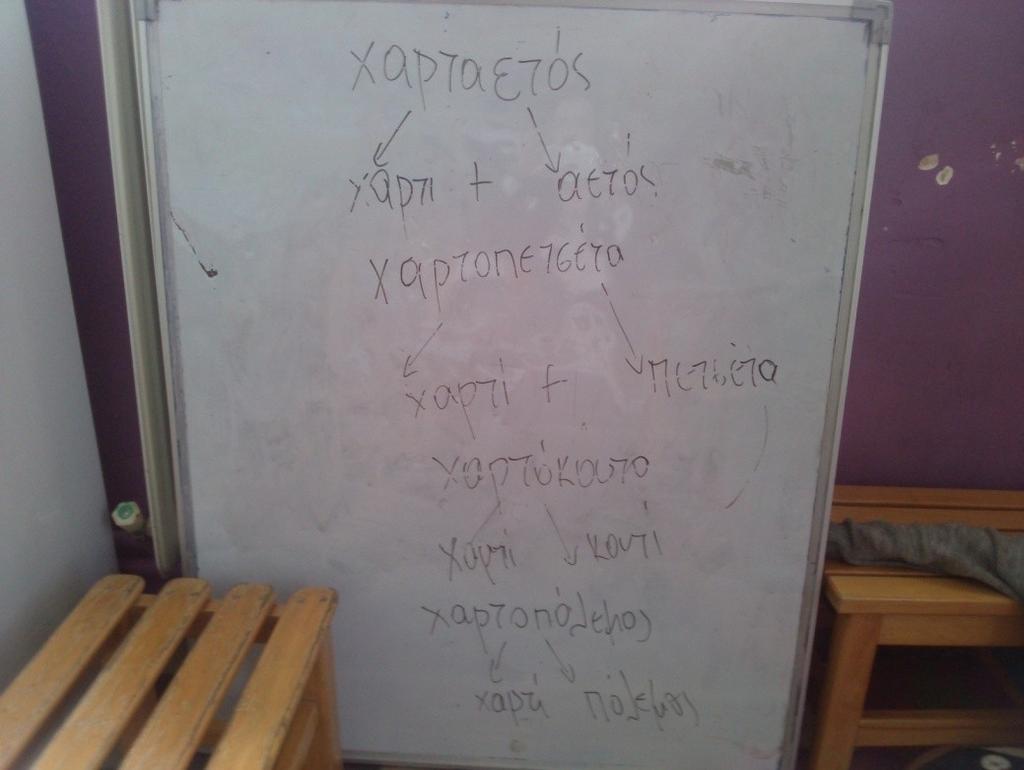 χαρταετός
χάρτι + αετός
χαρτοπετσέτα
χαρτί + πετσέτα
χαρτόκουτο
χαρτί κουτί
χαρτοπόλεμος
χαρτί πόλεμος